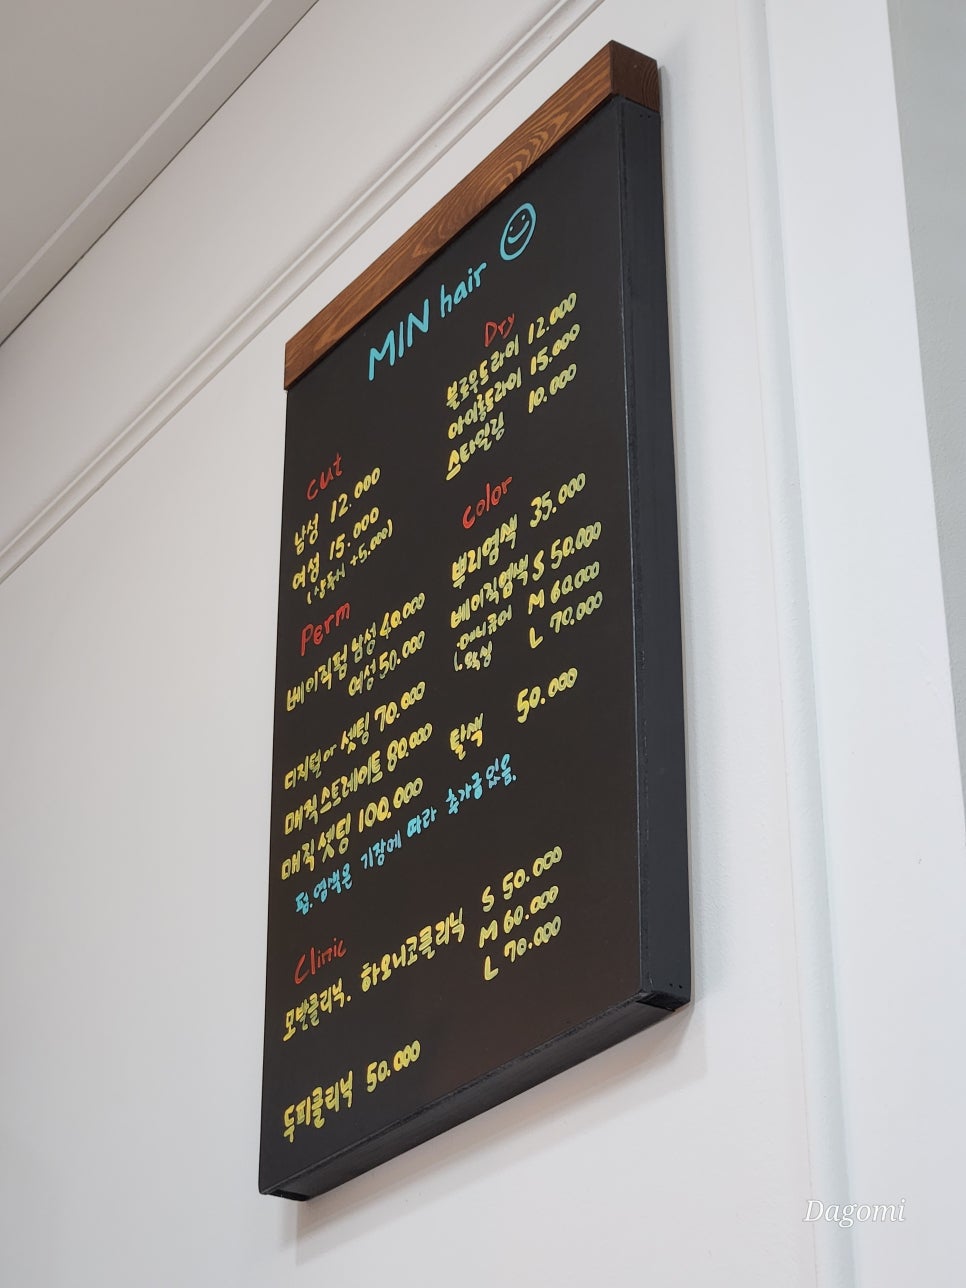 MIN hair
cut
남성 12.000
여성 15.000
(샴푸시 +5.000)
Perm
베이직펌 남성 40.000
여성 50.000
디지털or 셋팅 70.000
매직스트레이트 80.000
매직셋팅 100.000
펌.염색은 기장에 따라 추가금있음.
Dry
블로우드라이 12.000
아이롱드라이 15.000
스타일링 10.000
color
뿌리염색 35.000
베이직염색 S 50.000
매니큐어 M 60.000
왁싱 L 70.000
탈색 50.000
Clinic
모발클리닉. 하오니코클리닉 S 50.000
M 60.000
L 70.000
두피클리닉 50.000
Dagomi